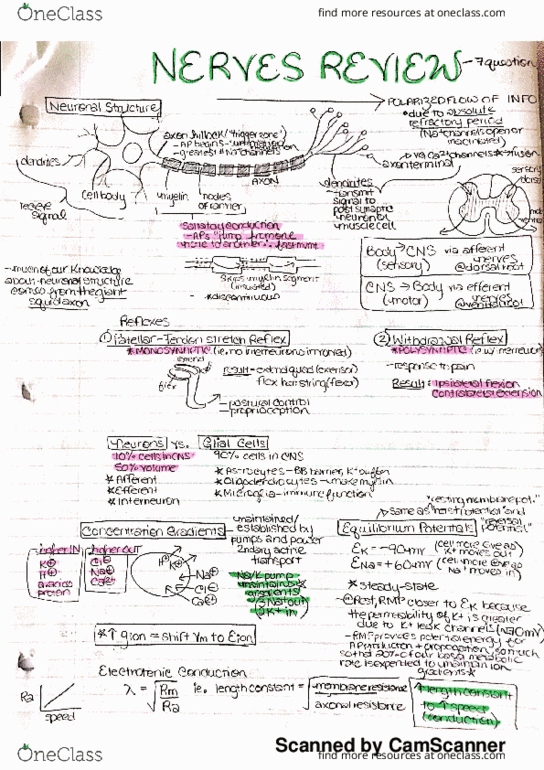 OneClass
find more resources at oneclass.com
NERVES REVIEW
- 7 question
Neuronal Structure
POLARIZED FLOW OF INFO
• due to absolute
refractory period
(Na+ channels open or
inactivated)
axon hillock / "trigger zone"
- AP begins
- greatest # Na+ channels
axon terminal
dendrites
AXON
cell body
myelin
nodes
of ranvier
receive
signal
dendrites
- transmit
signal to
post synaptic
neuron or
muscle cell
sensory
dorsal
Saltatory conduction
- APs "jump" from one
node to another ∴ fast
skips myelin segment
(insulated)
* discontinuous
Body → CNS via afferent
(sensory) nerves
@ dorsal root
CNS → Body via efferent
(motor) nerves
@ ventral root
- much of our knowledge
about neuronal structure
comes from the giant
squid axon
Reflexes
① Patellar-Tendon stretch Reflex
* MONOSYNAPTIC (i.e. no interneurons involved)
Result - extend quad (extensor)
flex hamstring (flexor)
- postural control
- proprioception
② Withdrawal Reflex
* POLYSYNAPTIC (i.e. w/ interneuron)
- response to pain
Result: Ipsilateral flexion
Contralateral extension
Neurons vs. Glial Cells
10% cells in CNS
50% volume
* Afferent
* Efferent
* Interneuron
90% cells in CNS
* Astrocytes - BB barrier, K+ buffer
* Oligodendrocytes - make myelin
* Microglia - immune function
"resting membrane pot."
Concentration Gradients
maintained/
established by
pumps and power
2ndary active
transport
higher IN
K+
higher out
Cl-
Na+
Ca2+
K+
Na+
Cl-
Ca2+
Na/K pump
maintains
gradients
(3 Na+ out
2 K+ in)
* ↑ g ion = shift Vm to E ion
Equilibrium Potentials
EK = -90mV
K+ moves out)
ENa = +60mV
Na+ moves in)
* steady-state
@ Rest, RMP closer to EK because
the permeability of K+ is greater
due to K+ leak channels
- RMP provides potential energy for
AP production + propagation, so much
so that 20% of our basal metabolic
rate is expended to maintain ion
gradients *
Electrotonic Conduction
Ra
speed
λ = √ Rm / Ra
i.e. length constant = √ membrane resistance / axonal resistance
↑ length constant
to ↑ speed
(conduction)
Scanned by CamScanner
OneClass
find more resources at oneclass.com